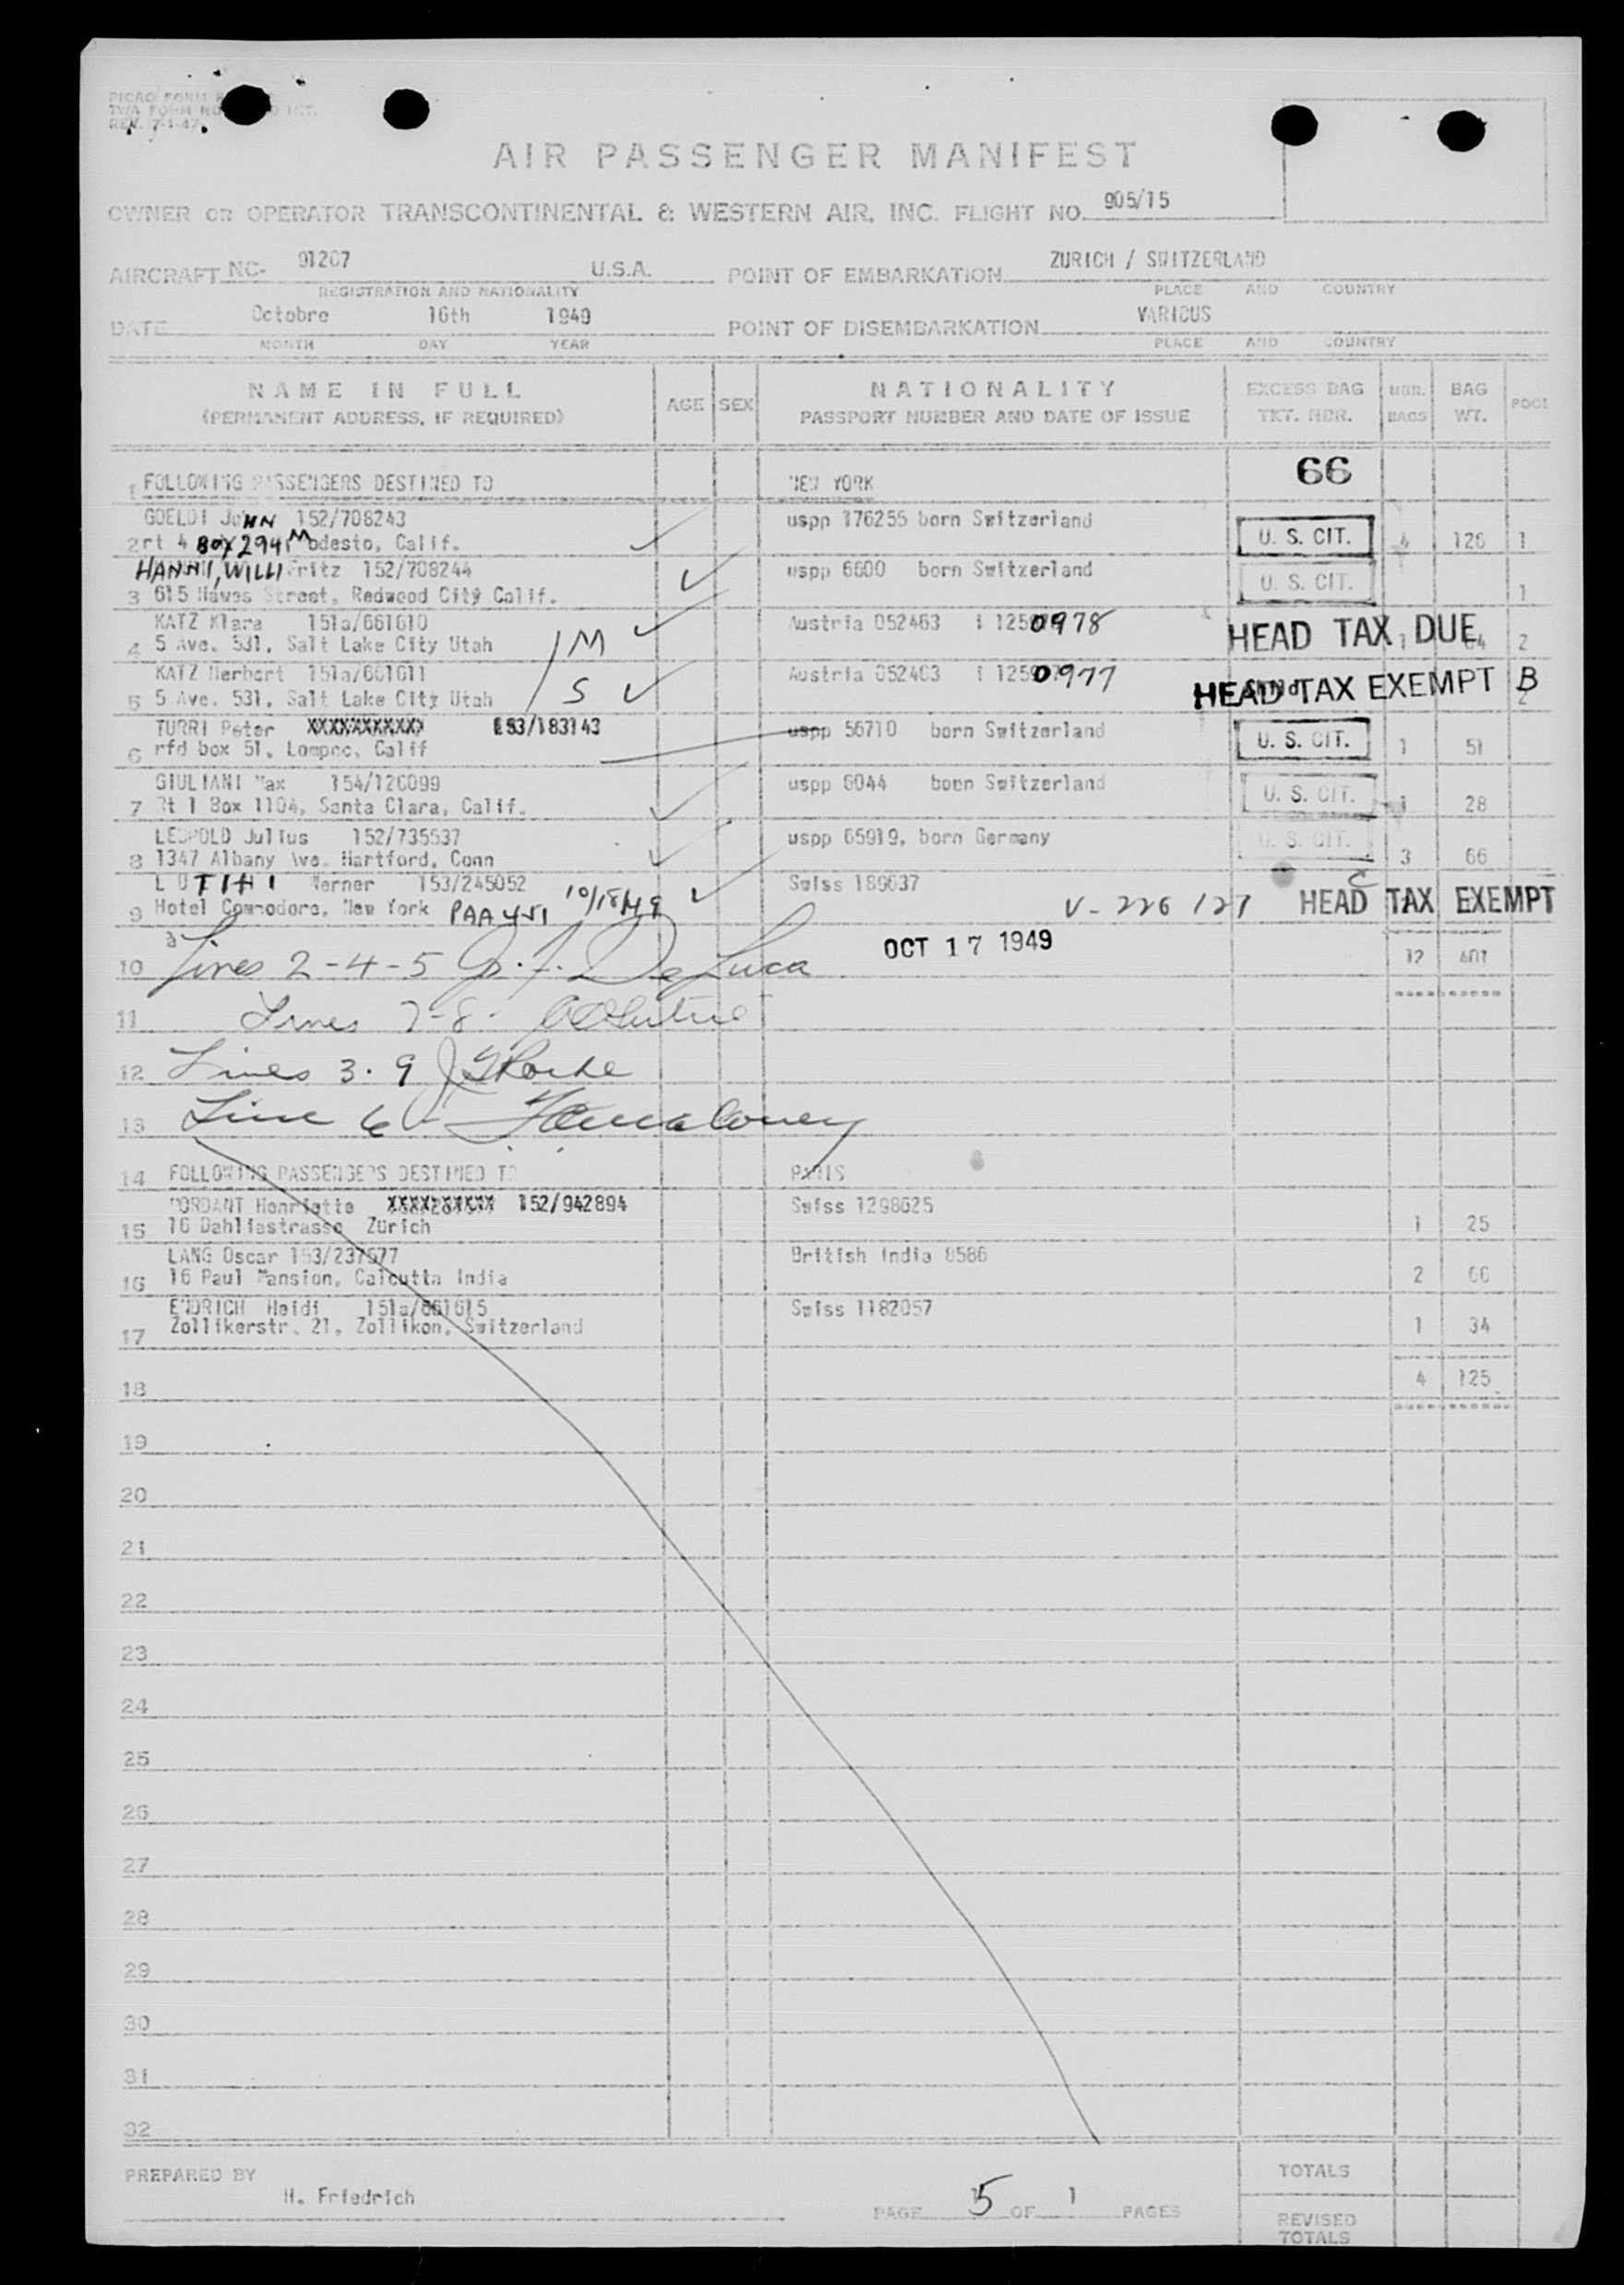 PICAO FORM
TWA FORM NO INT.
REV. 7-1-47
AIR PASSENGER MANIFEST
OWNER OR OPERATOR TRANSCONTINENTAL & WESTERN AIR, INC. FLIGHT NO. 905/15
AIRCRAFT NC- 91207 U.S.A. POINT OF EMBARKATION ZURICH / SWITZERLAND
REGISTRATION AND NATIONALITY PLACE AND COUNTRY
DATE Octobre 16th 1949 POINT OF DISEMBARKATION VARIOUS
MONTH DAY YEAR PLACE AND COUNTRY
NAME IN FULL AGE SEX NATIONALITY EXCESS BAG NBR. BAG POOL
(PERMANENT ADDRESS, IF REQUIRED) PASSPORT NUMBER AND DATE OF ISSUE TKT. NBR. BAGS WT.
1 FOLLOWING PASSENGERS DESTINED TO NEW YORK 66
GOELDI JOHN 152/708243 uspp 176255 born Switzerland U. S. CIT.
2 rt 4 BOX 2941 Modesto, Calif. 4 126 1
HANNI, WILLI Fritz 152/708244 uspp 6600 born Switzerland U. S. CIT.
3 615 Hawes Street, Redwood City Calif. 1
KATZ Klara 151a/661610 Austria 052463 0978 HEAD TAX DUE
4 5 Ave. 531, Salt Lake City Utah M 1 64 2
KATZ Herbert 151a/661611 Austria 052463 0977 HEAD TAX EXEMPT B
5 5 Ave. 531, Salt Lake City Utah S 2
TURRI Peter XXXXXXXXXX 153/183143 uspp 56710 born Switzerland U. S. CIT.
6 rfd box 51, Lompoc, Calif 1 51
GIULIANI Max 154/126099 uspp 6044 boen Switzerland U. S. CIT.
7 Rt 1 Box 1104, Santa Clara, Calif. 1 28
LEOPOLD Julius 152/735537 uspp 65919, born Germany U. S. CIT.
8 1347 Albany Ave. Hartford, Conn 3 66
L U T I H I Werner 153/245052 Swiss 186637 C
9 Hotel Commodore, New York PAA 451 10/18/49 V- 226 127 HEAD TAX EXEMPT
10 Lines 2-4-5 De Luca OCT 17 1949 12 401
11 Lines 7-8-
12 Lines 3. 9
13 Line 6
14 FOLLOWING PASSENGERS DESTINED TO PARIS
MORDANT Henriette XXXXXXXXXX 152/942894 Swiss 1298625
15 16 Dahliastrasse Zürich 1 25
LANG Oscar 153/237677 British India 8586
16 16 Paul Mansion, Calcutta India 2 66
ENDRICH Heidi 151a/661615 Swiss 1182057
17 Zollikerstr. 21, Zollikon, Switzerland 1 34
18 4 125
19
20
21
22
23
24
25
26
27
28
29
30
31
32
PREPARED BY TOTALS
H. Friedrich
PAGE 5 OF 1 PAGES
REVISED
TOTALS